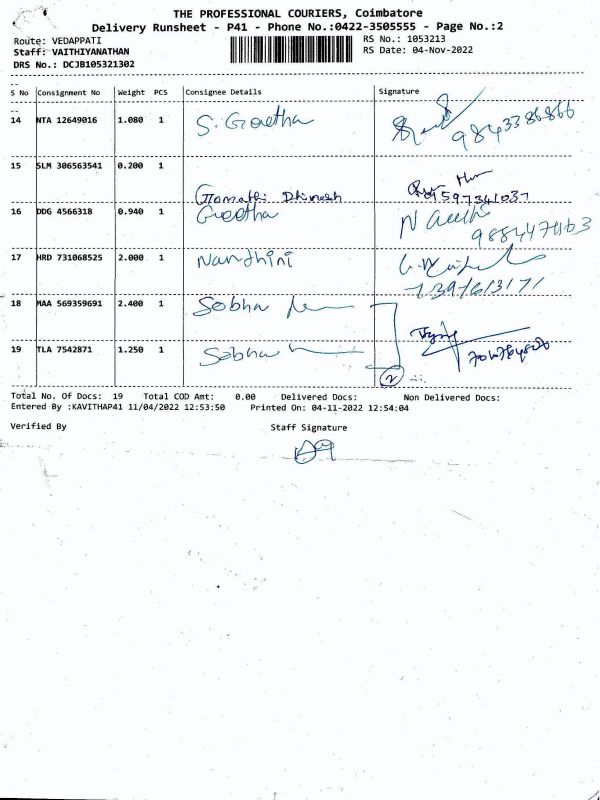 THE PROFESSIONAL COURIERS, Coimbatore
Delivery Runsheet - P41 - Phone No.:0422-3505555 - Page No.:2
Route: VEDAPPATI
RS No.: 1053213
Staff: VAITHIYANATHAN
RS Date: 04-Nov-2022
DRS No.: DCJB105321302
S No Consignment No Weight PCS Consignee Details Signature
14 NTA 12649016 1.080 1 S. Geetha
9843386866
15 SLM 306563541 0.200 1
Gomathi Dhinesh 9597341037
16 DDG 4566318 0.940 1 Geetha
17 HRD 731068525 2.000 1 Nandhini
18 MAA 569359691 2.400 1 Sobha
19 TLA 7542871 1.250 1 Sobha
2
Total No. Of Docs: 19 Total COD Amt: 0.00 Delivered Docs: Non Delivered Docs:
Entered By :KAVITHAP41 11/04/2022 12:53:50 Printed On: 04-11-2022 12:54:04
Verified By Staff Signature